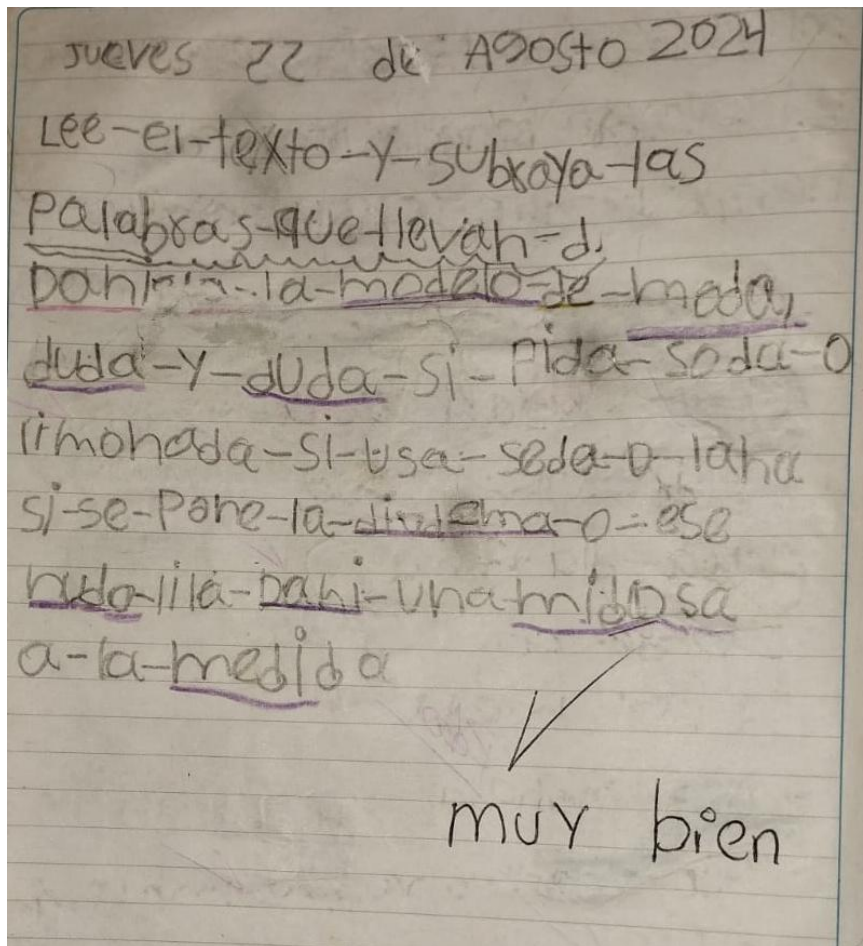 Jueves 22 de Agosto 2024
Lee-el-texto-y-subraya-las
Palabras-que-llevan-d.
la-modelo-de-moda,
duda-y-duda-si-Pida-soda-o
limonada-si-usa-seda-o-lana
si-se-Pone-la-diadema-o-ese
nudo-lila-Dani-una midosa
a-la-medida
muy bien